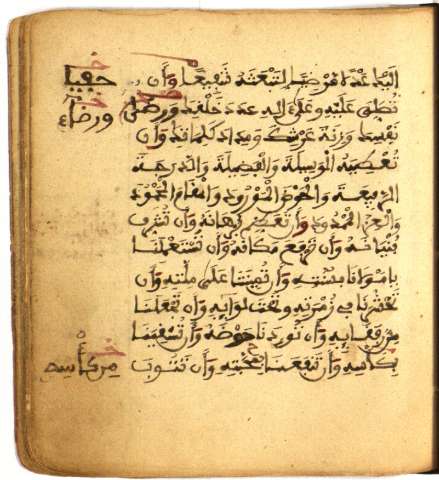 مرضيا لتبعثه شفيعا وأن
تصلي عليه وعلى آله عدد خلقك ورضى
نفسك وزنة عرشك ومداد كلماتك وأن
تعطيه الوسيلة والفضيلة والدرجة
الرفيعة والحوض المورود والمقام المحمود
والعز الممدود وأن تعظم برهانه وأن تشرف
بنيانه وأن ترفع مكانه وأن تستعملنا
يا مولانا بسنته وأن تميتنا على ملته وأن
تحشرنا في زمرته وتحت لوائه وأن تجعلنا
من رفقائه وأن توردنا حوضه وأن تسقينا
بكأسه وأن تنفعنا بمحبته وأن تتوب
حفيا
ورضاء
من كأسه